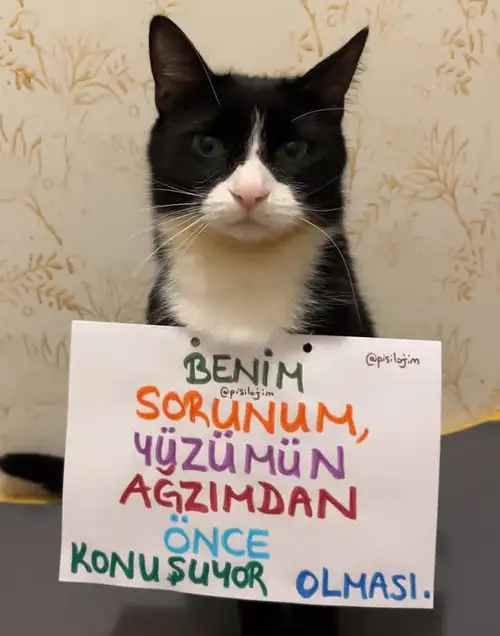 BENİM
@pisilojim
@pisilojim
SORUNUM,
YÜZÜMÜN
AĞZIMDAN
ÖNCE
KONUŞUYOR OLMASI.